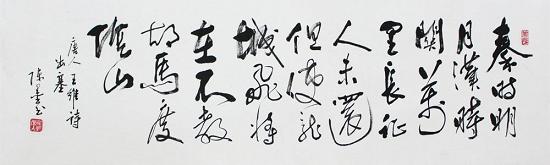 秦时明
月漢時
關萬
里长征
人未還
但使龙
城飛将
在不教
胡馬度
陰山
唐人王維詩
出塞